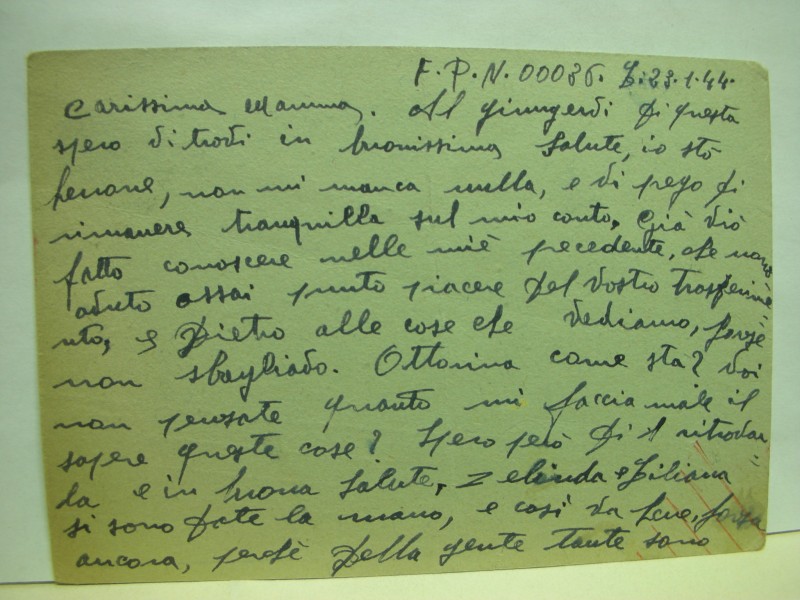 F.P.N. 00036. Z. 23.1.44.
Carissima Mamma. Al giungerdi di questa
spero di trodi in buonissima salute, io stò
benone, non mi manca nulla, e di pego di
rimanere tranquilla sul mio conto. Già viò
fatto conoscere nelle miè pecedente, che non ò
aduto assai punto piacere del vostro trasferime
nto, e Dietro alle cose che vediamo, forse
non sbagliado. Ottorina come sta? Voi
non pensate quanto mi faccia male il
sapere queste cose? Spero però di ritrodar
la e in buona salute, Zelinda e Liliana
si sono date la mano, e così va bene, forza
ancora, perchè della gente tante sono